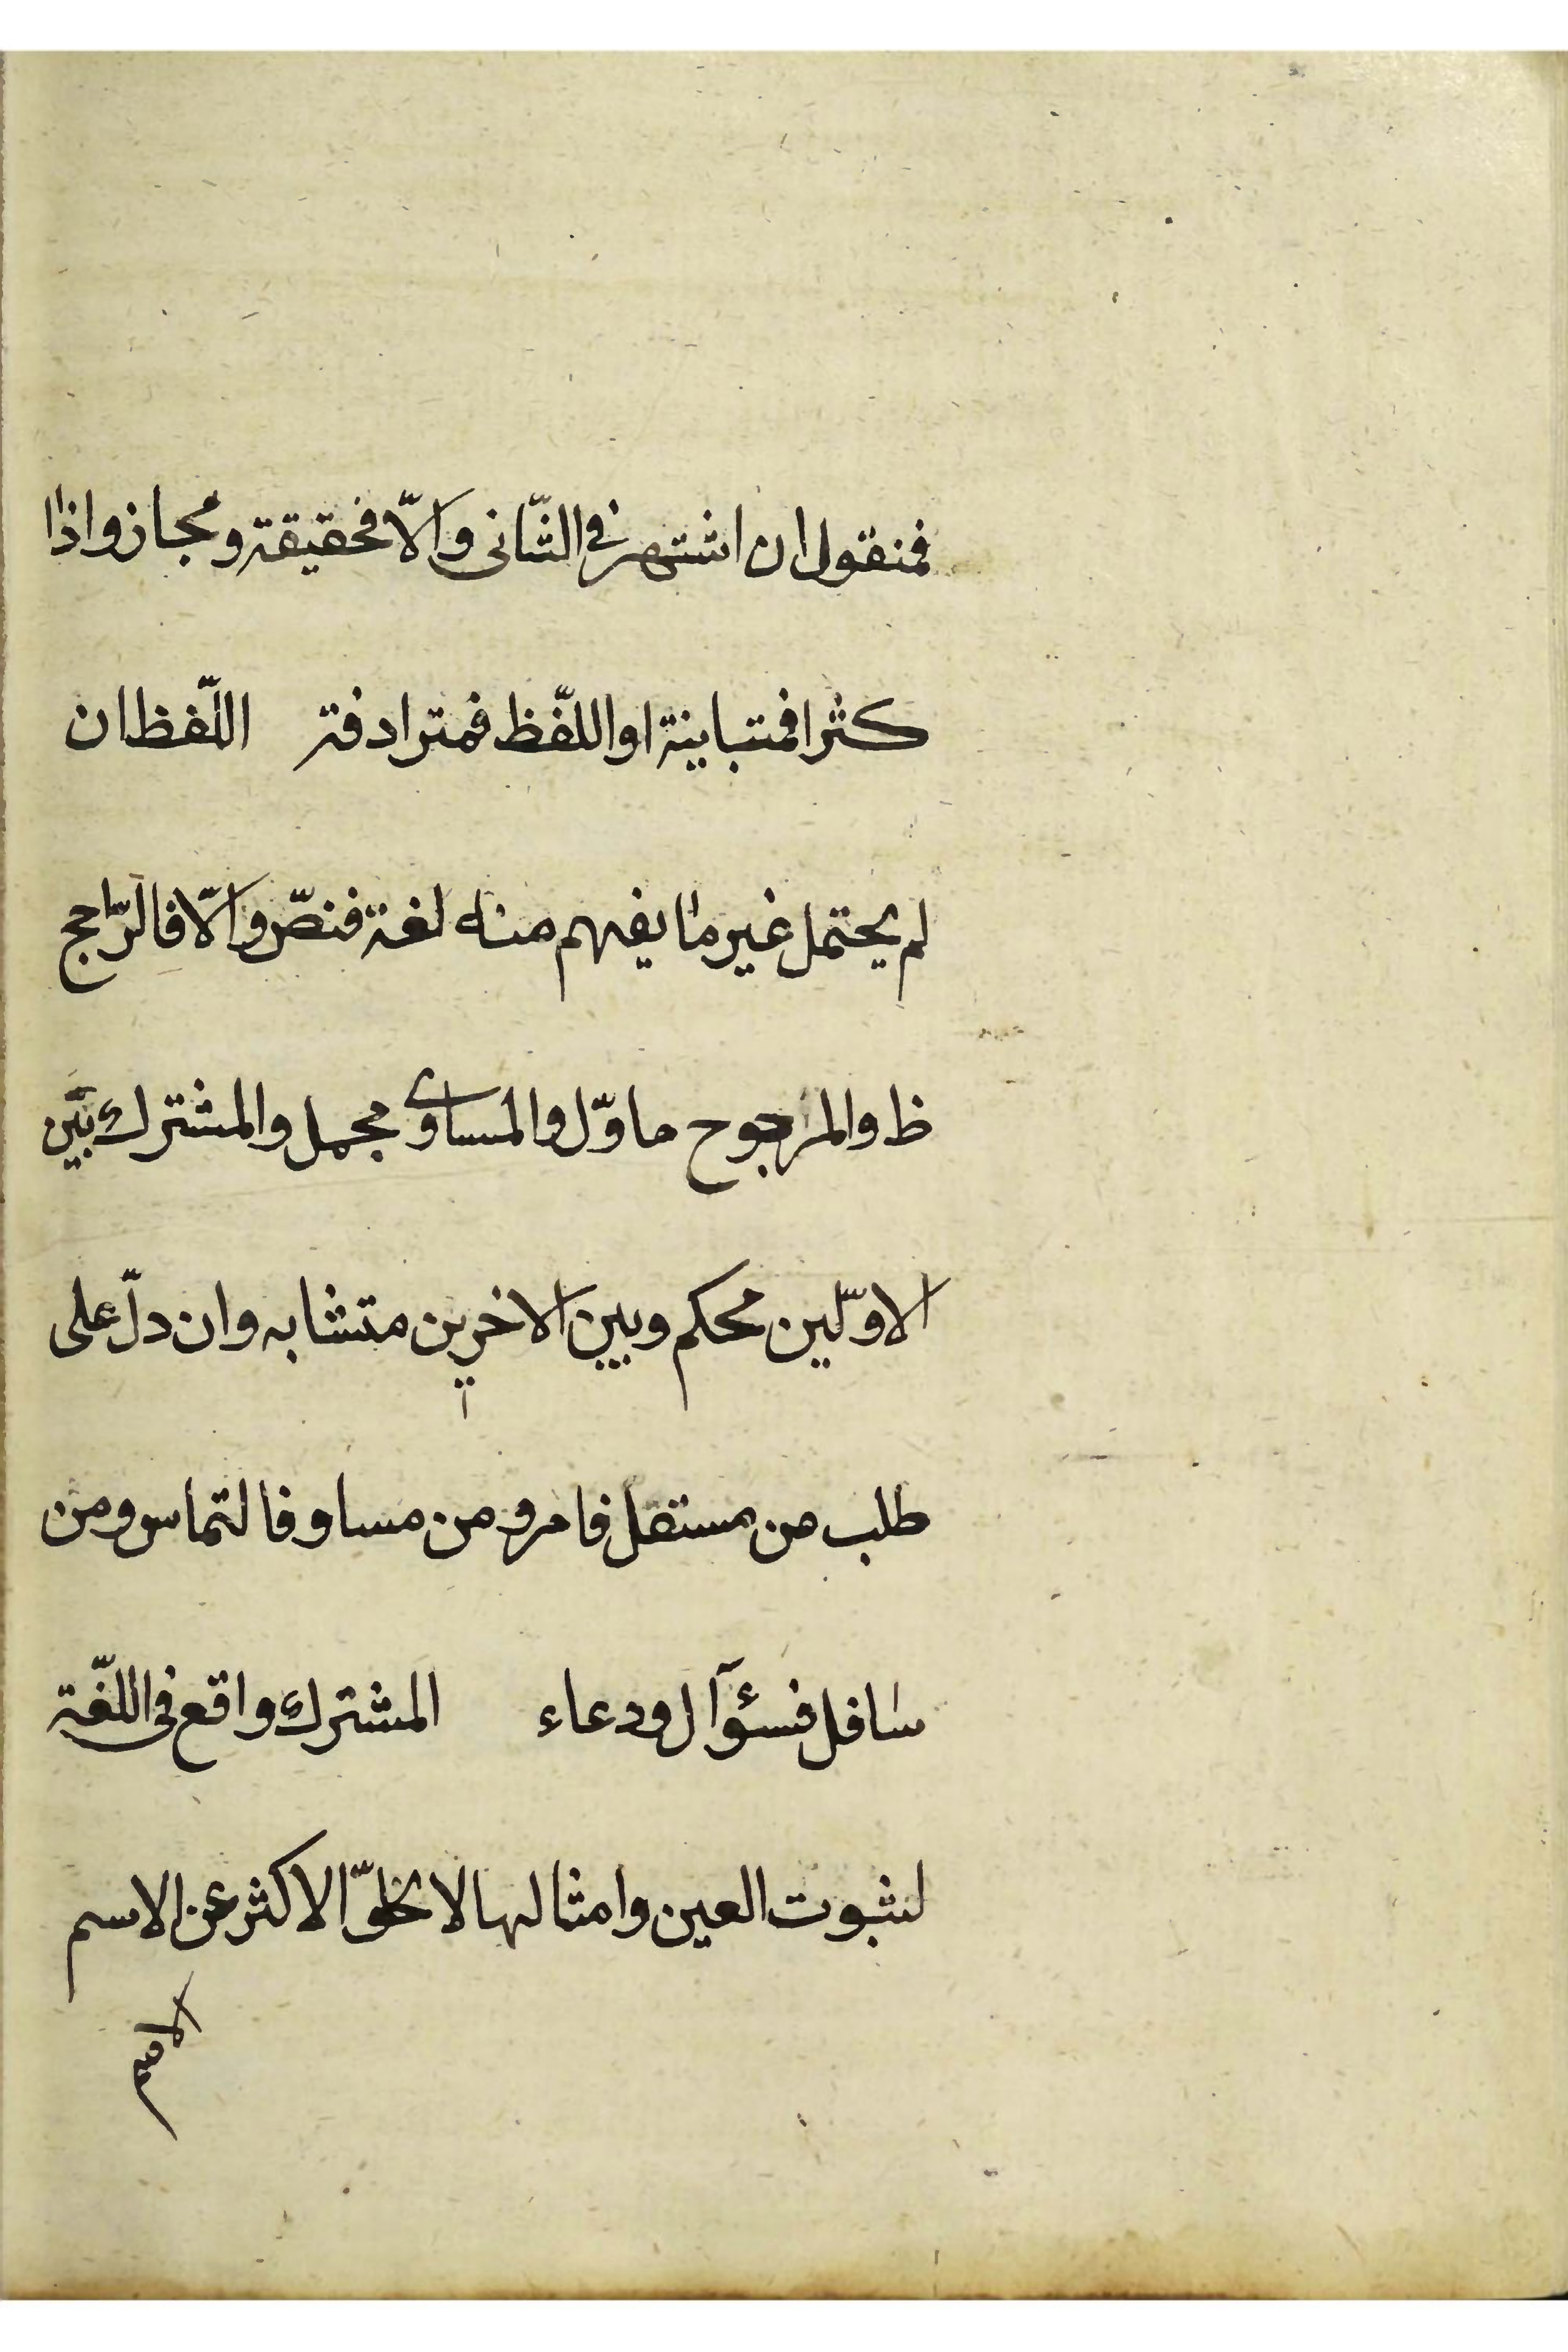 فمنقول ان اشتهر فى الثّانى والّا فحقيقة ومجاز واذا
كثرا فمتباينة او اللّفظ فمترادفة اللّفظ ان
لم يحتمل غير ما يفهم منه لغة فنصّ والّا فالرّاجح
ظ والمرجوح ماوّل والمساوى مجمل والمشترك بين
الاوّلين محكم وبين الاخيرين متشابه وان دلّ على
طلب من مستقل فامر ومن مساو فالتماس ومن
سافل فسؤآل ودعاء المشترك واقع فى اللّغة
لثبوت العين وامثالها لا لخلوّ الاكثر عن الاسم